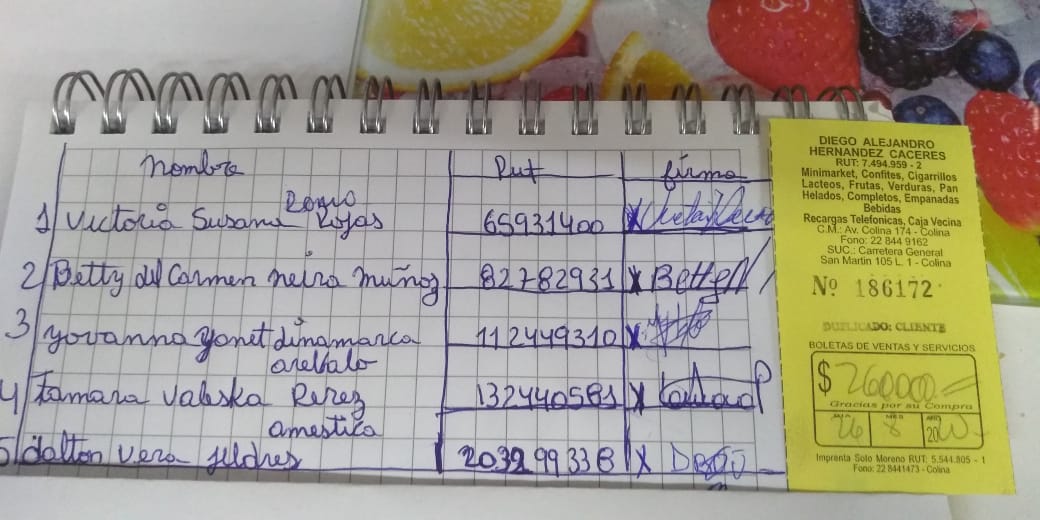 nombre Rut firma
Romo
1) Victoria Susana Rojas 65931400 X
2) Betty del Carmen neira muñoz 82782931 X Betty
3 yovanna yonet dinamarca 112449310 X
arebalo
4) Tamara Valeska Perez 132440581 X
amestica
5) dalton vera 203299338 X
DIEGO ALEJANDRO
HERNANDEZ CACERES
RUT: 7.494.959 - 2
Minimarket, Confites, Cigarrillos
Lacteos, Frutas, Verduras, Pan
Helados, Completos, Empanadas
Bebidas
Recargas Telefonicas, Caja Vecina
C.M.: Av. Colina 174 - Colina
Fono: 22 844 9162
SUC.: Carretera General
San Martin 105 L. 1 - Colina
Nº 186172
DUPLICADO: CLIENTE
BOLETAS DE VENTAS Y SERVICIOS
$ 260000
Gracias por su Compra
DIA MES AÑO
26 8 2020
Imprenta Soto Moreno RUT: 5.544.805 - 1
Fono: 22 8441473 - Colina